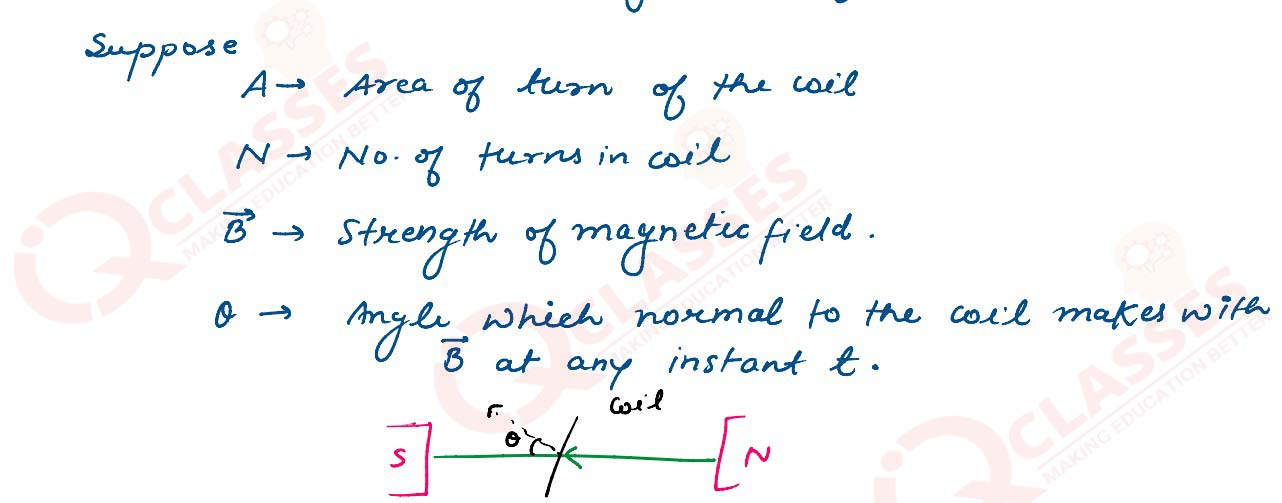 Suppose
A → Area of turn of the coil
N → No. of turns in coil
B⃗ → Strength of magnetic field.
θ → Angle which normal to the coil makes with
B⃗ at any instant t.
coil
θ
S
N
iQ CLASSES
MAKING EDUCATION BETTER
CLASSES
MAKING EDUCATION BETTER
CLASSES
MAKING EDUCATION BETTER
CLASSES
MAKING EDUCATION BETTER